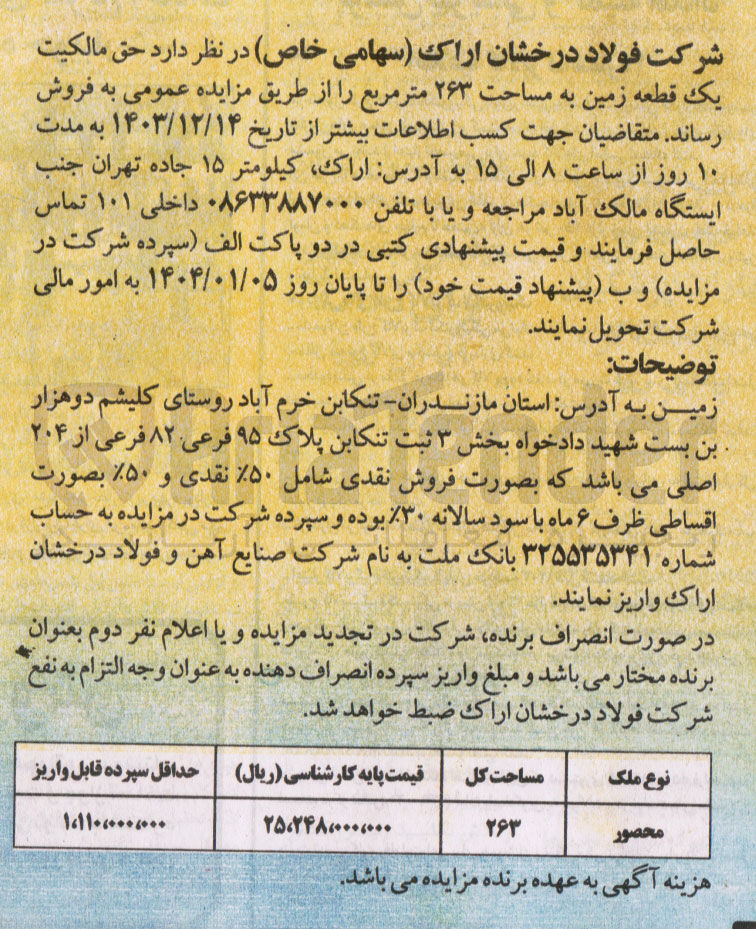 شرکت فولاد درخشان اراک (سهامی خاص) در نظر دارد حق مالکیت
یک قطعه زمین به مساحت ۲۶۳ مترمربع را از طریق مزایده عمومی به فروش
رساند. متقاضیان جهت کسب اطلاعات بیشتر از تاریخ ۱۴۰۳/۱۲/۱۴ به مدت
۱۰ روز از ساعت ۸ الی ۱۵ به آدرس: اراک، کیلومتر ۱۵ جاده تهران جنب
ایستگاه مالک آباد مراجعه و یا با تلفن ۰۸۶۳۳۸۸۷۰۰۰ داخلی ۱۰۱ تماس
حاصل فرمایند و قیمت پیشنهادی کتبی در دو پاکت الف (سپرده شرکت در
مزایده) و ب (پیشنهاد قیمت خود) را تا پایان روز ۱۴۰۴/۰۱/۰۵ به امور مالی
شرکت تحویل نمایند.
توضیحات:
زمین به آدرس: استان مازندران- تنکابن خرم آباد روستای کلیشم دوهزار
بن بست شهید دادخواه بخش ۳ ثبت تنکابن پلاک ۹۵ فرعی ۸۲ فرعی از ۲۰۴
اصلی می باشد که بصورت فروش نقدی شامل ۵۰٪ نقدی و ۵۰٪ بصورت
اقساطی ظرف ۶ ماه با سود سالانه ۳۰٪ بوده و سپرده شرکت در مزایده به حساب
شماره ۳۲۵۵۳۵۳۴۱ بانک ملت به نام شرکت صنایع آهن و فولاد درخشان
اراک واریز نمایند.
در صورت انصراف برنده، شرکت در تجدید مزایده و یا اعلام نفر دوم بعنوان
برنده مختار می باشد و مبلغ واریز سپرده انصراف دهنده به عنوان وجه التزام به نفع
شرکت فولاد درخشان اراک ضبط خواهد شد.
نوع ملک مساحت کل قیمت پایه کارشناسی (ریال) حداقل سپرده قابل واریز
محصور ۲۶۳ ۲۵،۲۴۸،۰۰۰،۰۰۰ ۱،۱۱۰،۰۰۰،۰۰۰
هزینه آگهی به عهده برنده مزایده می باشد.